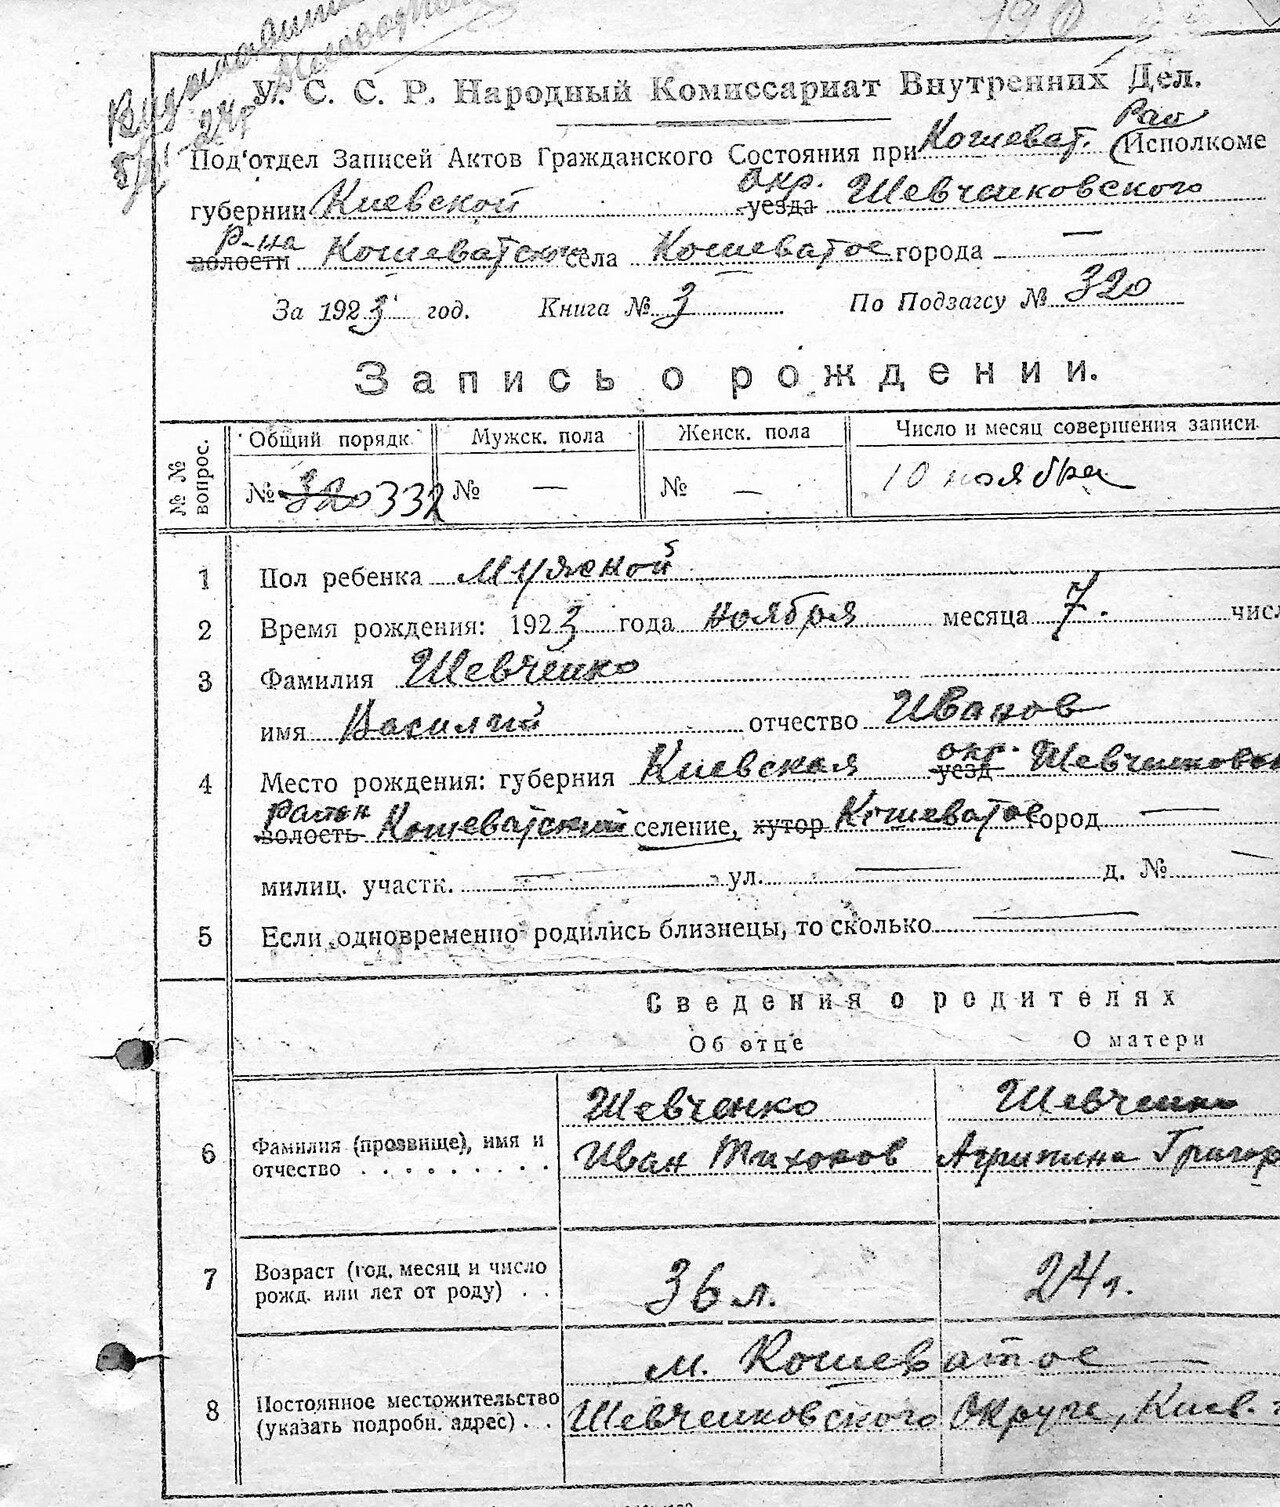 У. С. С. Р. Народный Комиссариат Внутренних Дел.
Рай
Под'отдел Записей Актов Гражданского Состояния при Кошеват. (Исполкоме
окр.
губернии Киевской уезда Шевченковского
р-на
волости Кошеватск села Кошеватое города —
За 1923 год. Книга № 3 По Подзагсу № 320
Запись о рождении.
№ № вопрос.
Общий порядк. Мужск. пола Женск. пола Число и месяц совершения записи.
№ 320 332 № — № — 10 ноября
1 Пол ребенка Мужской
2 Время рождения: 1923 года ноября месяца 7. числ
3 Фамилия Шевченко
имя Василий отчество Иванов
окр.
4 Место рождения: губерния Киевская уезд Шевченковск
Район
волость Кошеватский селение, хутор Кошеватое город —
милиц. участк. — ул. — д. № —
5 Если одновременно родились близнецы, то сколько —
Сведения о родителях
Об отце О матери
Шевченко Шевченко
6 Фамилия (прозвище), имя и
отчество . . . . . . . . . Иван Тихонов Агрипина Григор
7 Возраст (год, месяц и число
рожд. или лет от роду) . . 36 л. 24 г.
м. Кошеватое
8 Постоянное местожительство
(указать подробн. адрес) . . Шевченковского Округе, Киев. г